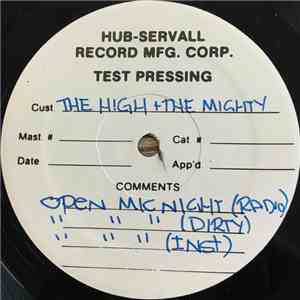 HUB-SERVALL
RECORD MFG. CORP.
TEST PRESSING
Cust THE HIGH + THE MIGHTY
Mast # Cat #
Date App'd
COMMENTS
OPEN MIC NIGHT (RADIO)
" " " (DIRTY)
" " " (INST)